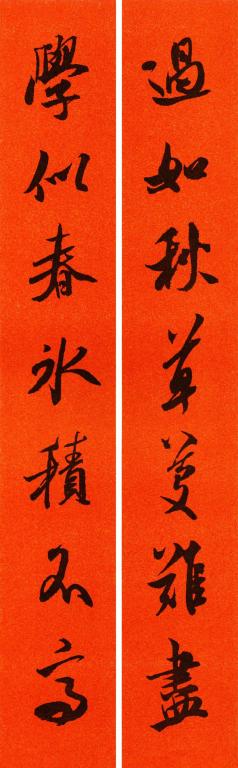 過如秋草芟難盡
學似春氷積不高